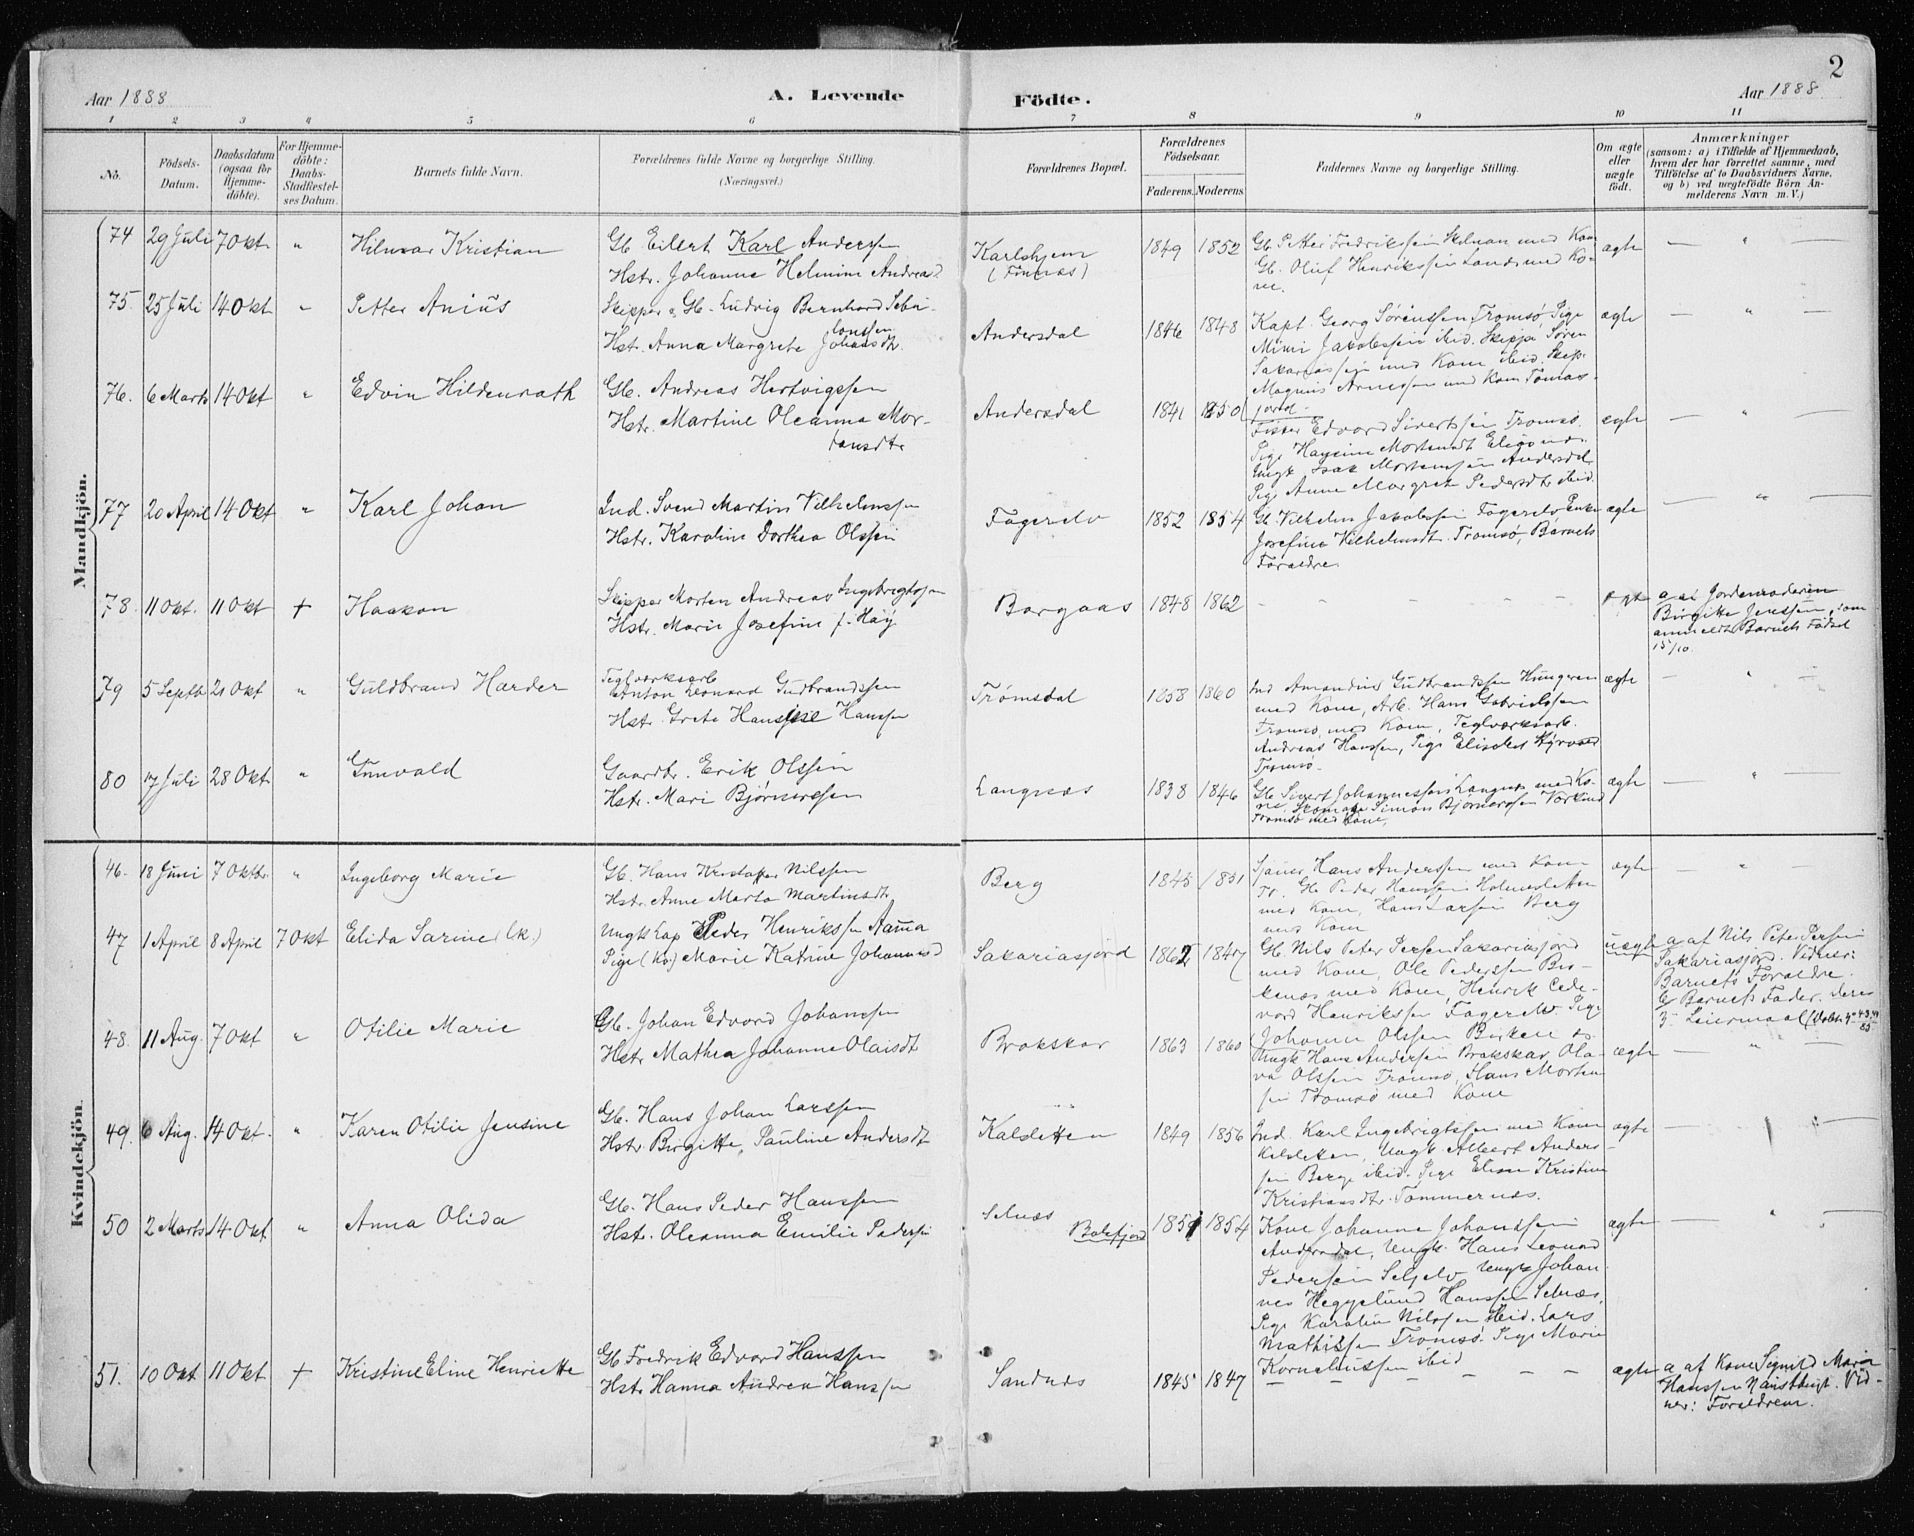 2
Aar 1888
A. Levende
Födte.
Aar 1888
1 2 3 4 5 6 7 8 9 10 11
No.
Födsels-Datum.
Daabsdatum (ogsaa for Hjemme-döbte).
For Hjemme-döbte: Daabs-Stadfæstel-ses Datum.
Barnets fulde Navn.
Forældrenes fulde Navne og borgerlige Stilling.
(Næringsvei.)
Forældrenes Bopæl.
Forældrenes Födselsaar.
Faderens. Moderens.
Faddernes Navne og borgerlige Stilling.
Om ægte eller uægte födt.
Anmærkninger
(saasom: a) i Tilfælde af Hjemmedaab,
hvem der har forrettet samme, med
Tilföielse af to Daabsvidners Navne,
og b) ved uægtefödte Börn An-
melderens Navn m. V.)
Mandkjön.
74 29 Juli 7 Okt. " Hilmar Kristian
Gb. Eilert Karl Anderssen
Hstr. Johanna Helmine Andreasd.
Karlshjem
(Finnæs)
1849 1852
Gb. Petter Fredrikssen Skilnan med Kone
Gb. Oluf Henrikssen Sands med Ko-
ne.
ægte — " —
75. 25 Juli 14 Okt " Petter Anius
Skipper & Gb. Ludvig Bernhard Seba-
Hstr. Anna Margrete Johansdt.
Andersdal
1846 1848
Kapt. Georg Sørenssen, Tromsø, Pige
Mimi Jakobssen ibid. Skippr Søren
Sakariassen med Kone ibid. Skip.
Magnus Arnessen med Kone Tomas-
jord.
ægte — " —
76. 6 Marts 14 Okt " Edvin Hildenrath
Gb. Andreas Hertvigssen
Hstr. Martine Oleanna Mor-
tensdtr
Andersdal
1841 1850
Fisker Edvard Sivertssen Tromsø.
Pige Hansine Mortensdt
Ungk. Isak Mortenssen Andersdal
Pige Anne Margrete Pedersdtr ibid.
ægte — " —
77 20 April 14 Okt " Karl Johan
Ind. Svend Martin Vilhelmssen
Hstr. Karoline Dorthea Olssen
Fagerelv
1852 1854
Gb. Vilhelm Jakobssen Fagerelv Enke
Josefine Vilhelmsdt. Tromsø, Barnets
Forældre
ægte — " —
78. 11 Okt. 11 Okt + Haakon
Skipper Morten Andreas Ingebrigtssen
Hstr. Marie Josefine f. Høy
Bargaas
1848 1862
- - - - - -
ægte
a af Jordemoderen
Birgitte Jenssen, som
anmeldte Barnets Fødsel
15/10.
79 5 Septb 21 Okt " Guldbrand Harder
Teglværksarb
Anton Leonard Gudbrandssen
Hstr. Grete Hansine Hanssen
Tromsdal
1858 1860
Ind Amandus Gudbrandssen Hungeren
med Kone, Arb. Hans Gabrielssen
Tromsø, med Kone, Teglværksarb.
Andreas Hanssen, Pige Elisabet
Tromsø.
ægte — " —
80 17 Juli 28 Okt " Gunvald
Gaardbr. Erik Olssen
Hstr. Mari Bjørnerssen
Langnæs
1838 1846
Gb. Sivert Johannessen Langnes med Ko-
ne, Skomager Simon Bjørnerssen
Tromsø med Kone,
ægte — " —
Kvindekjön.
46. 18 Juni 7 Oktbr " Ingeborg Marie
Gb. Hans Kristoffer Nilssen
Hstr. Anne Marta Martinsdt.
Berg
1845 1851
Sjauer Hans Anderssen med Kone
Tr. Gb Peder Hanssen Holmesletten
med Kone, Hans Larsen Berg
med Kone
ægte — " —
47 1 April 8 April 7 Okt Elida Sarine (lk.)
Ungk Lap Peder Henrikssen Aama
Pige (kv.) Marie Katrine Johannesd
Sakariasjord
1862 1847
Gb. Nils Peter Persen Sakariasjord
med Kone, Ole Pederssen Bir-
kenæs med Kone, Henrik Ede-
vard Henrikssen Fagerelv Pige
Johanna Olssen Birken æs
uægte
a af Nils Peter Persen
Sakariasjord. Vidner:
Barnets Forældre.
b Barnets Fader. Deres
3 Leiermaal
48. 11 Aug. 7 Okt " Otilie Marie
Gb. Johan Edvard Johanssen
Hstr Mathea Johanna Olaisdt
Brokskar
1863 1860
Ungk Hans Anderssen Brokskar, Ola-
va Olssen Tromsø, Hans Morten-
sen Tromsø med Kone
ægte — " —
49. 6 Aug. 14 Okt. " Karen Otilie Jensine
Gb. Hans Johan Larssen
Hstr Birgitte Pauline Andersdt
Kalsletten
1849 1856
Ind. Karl Ingebrigtssen med Kone
Kalsletten, Ungk. Albert Anders-
sen Berge ibid. Pige Elise Kristine
Kristiansdtr. Tommernæs.
ægte — " —
50 2 Marts 14 Okt " Anna Olida
Gb. Hans Peder Hanssen
Hstr. Oleanna Emilie Pederssen
Selnæs
Balsfjord
1851 1854
Kone Johanna Johanssen
Andersdal, Ungk. Hans Leonard
Pederssen Seljelv Ungk Johan-
nes Heggelund Hanssen Selnæs,
Pige Karoline Nilssen ibid. Lars
Mathissen Tromsø. Pige Marie
Kornelinssen ibid
ægte — " —
51. 10 Okt 11 Okt + Kristine Eline Henriette
Gb Fredrik Edvard Hanssen
Hstr Hanna Andrea Hanssen
Sandnes
1845 1847
- - - - - -
ægte
a af Kone Signild Marie
Hanssen. Vid-
ner: Forældrene.